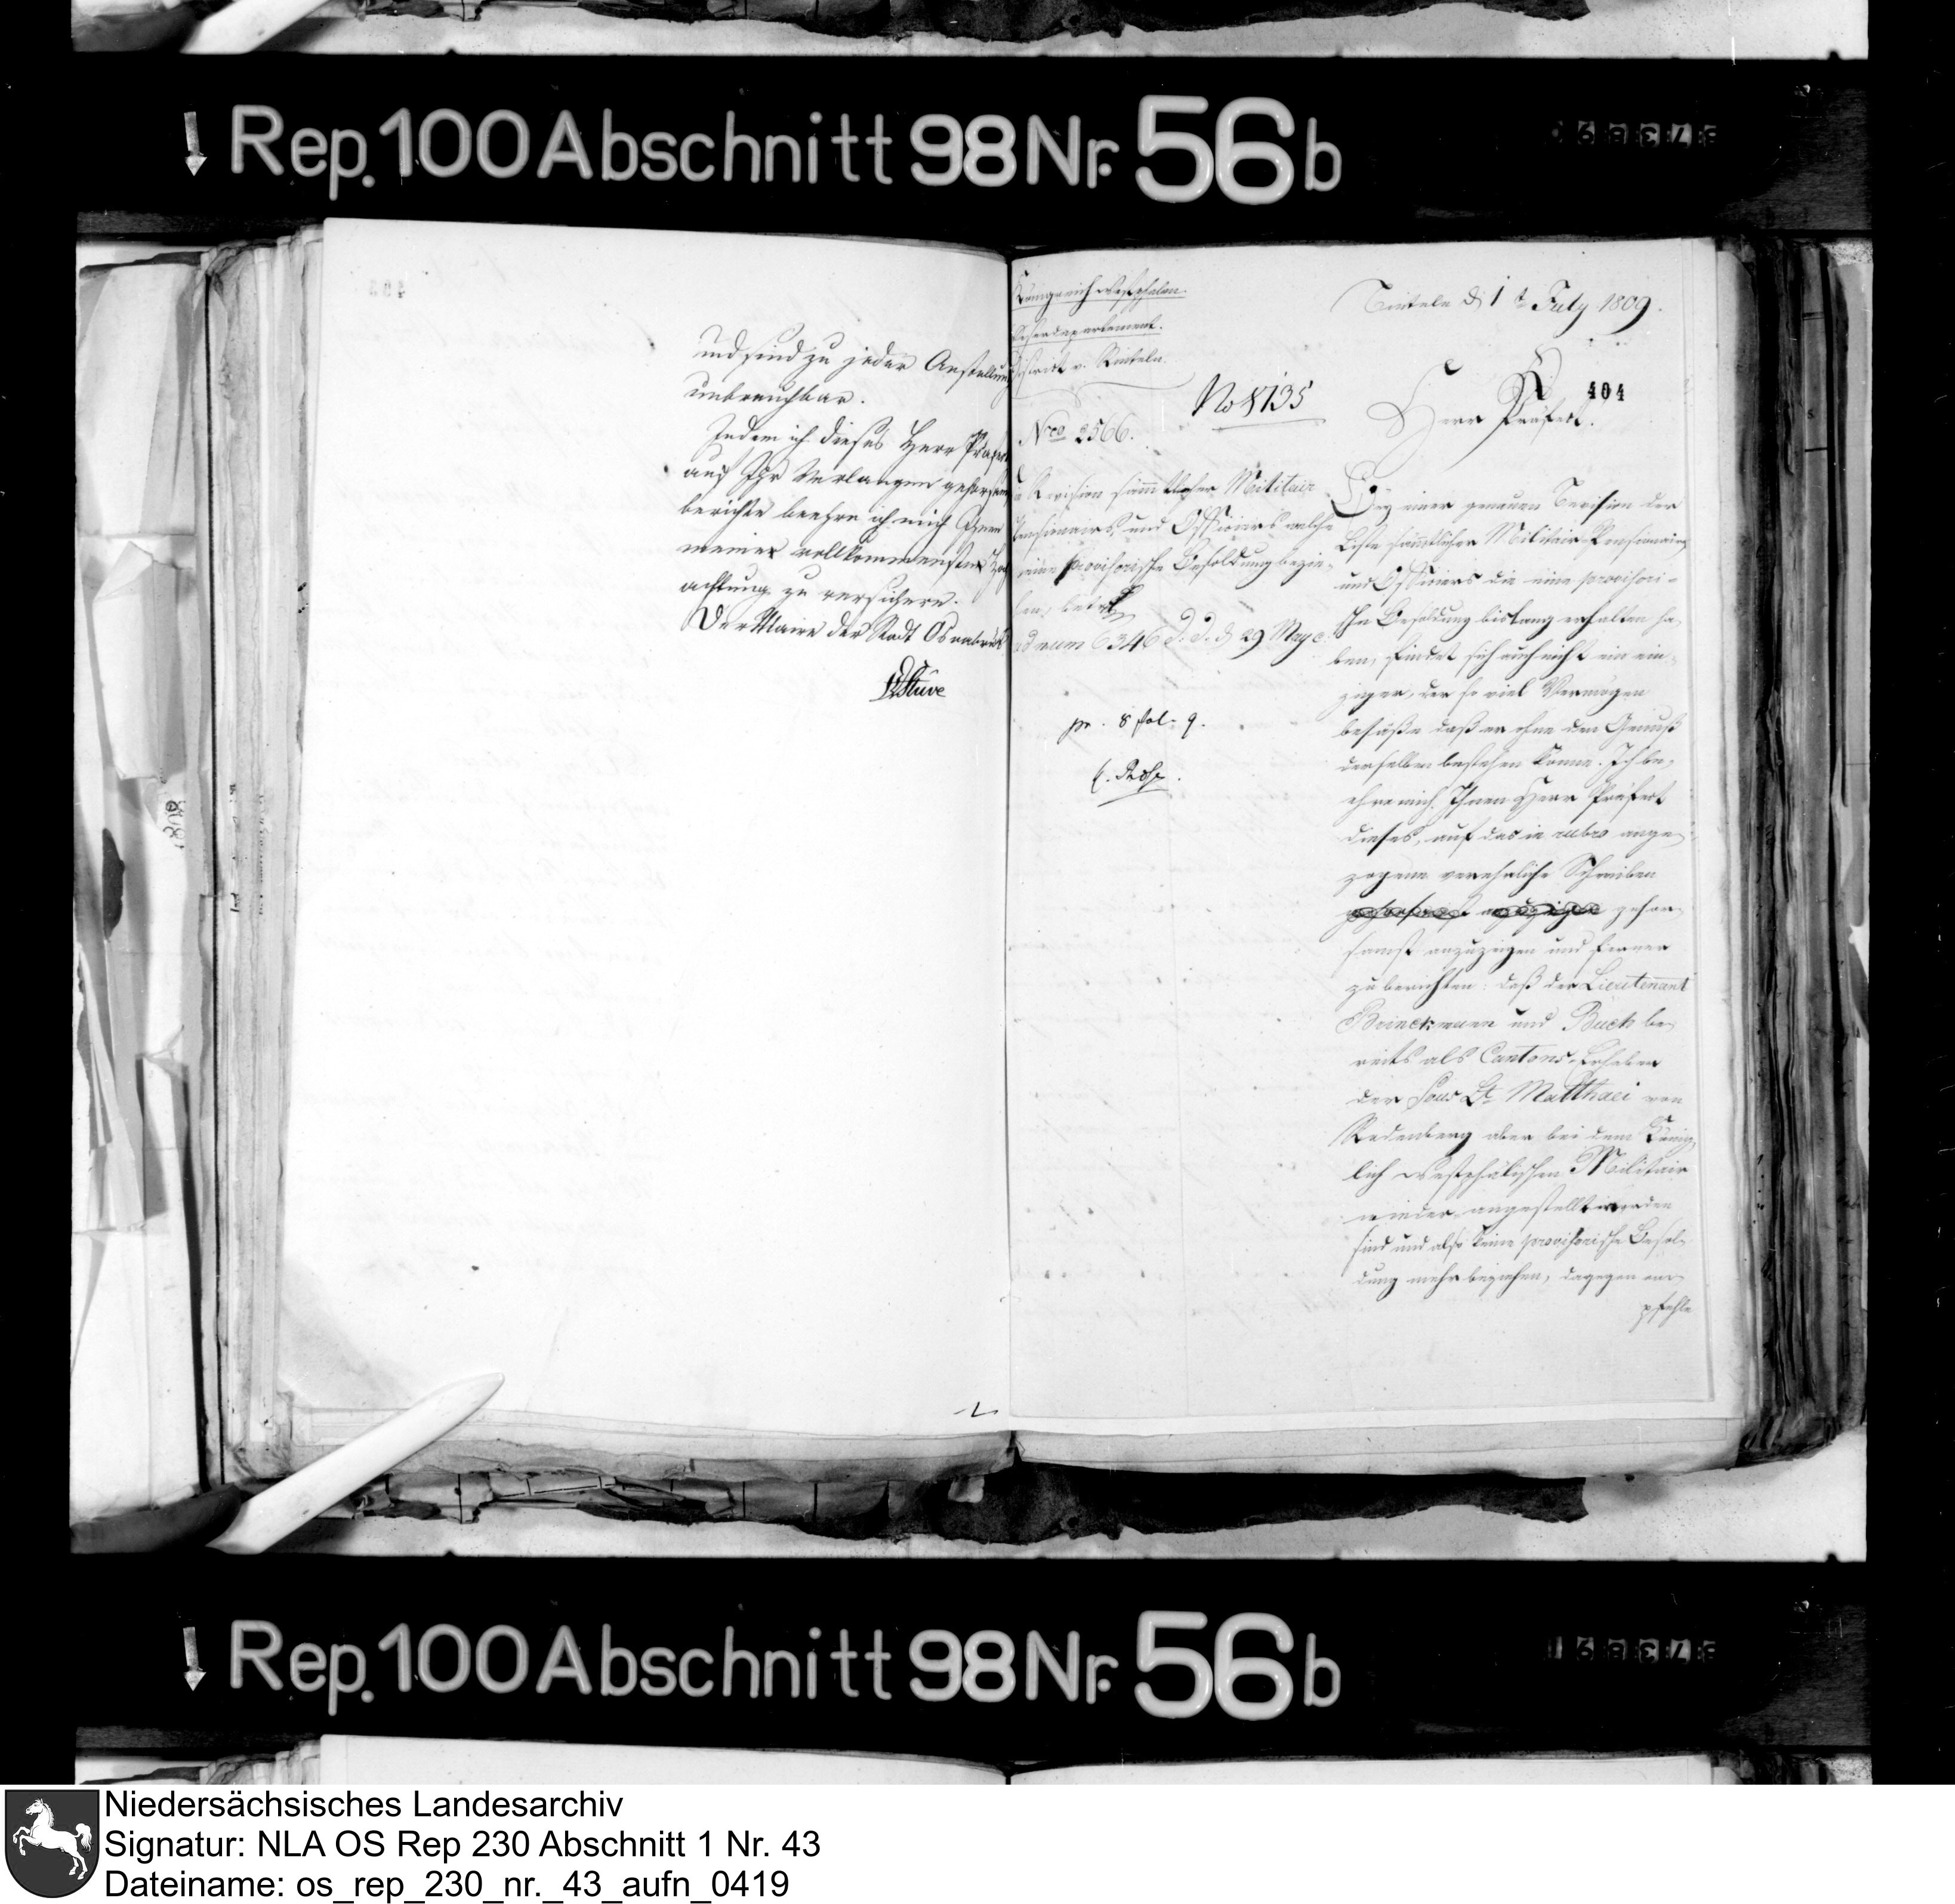 Rep. 100 Abschnitt 98 Nr. 56 b
und sind zu jeder Anstellung
unbrauchbar.
Indem ich dieses Herr Präfect
auf Ihr Verlangen gehorsamst
berichte beehre ich mich Ihnen
meiner vollkommensten Hoch
achtung zu versichern.
Der Maire der Stadt Osnabrück
Stüve
Königreich Westphalen.
Weserdepartement.
District v. Rinteln
No 4735
Nro 2566.
Revision sämmtlicher Militair
Pensionairs und Officiers welche
eine provisorische Besoldung bezie-
hen, betr
ad num 6346 d. d. 29 May c.
pr. 8 Jul. 9.
Rinteln d 1t July 1809.
404
Herr Präfect.
Bey einer genauen Revision der
Liste sämtlicher Militair Pensionairs
und Officiers die eine provisori-
sche Besoldung bislang erhalten ha-
ben, findet sich auch nicht ein ein-
ziger, der so viel Vermögen
besäße daß er ohne den Genuß
derselben bestehen könne. Ich be-
ehre mich Ihnen Herr Präfect
dieses, auf das in rubro ange-
zogene verehrliche Schreiben
gehorsamst anzuzeigen gehor-
samst anzuzeigen und ferner
zu berichten: daß der Lieutenant
Brinckmann und Buch be-
reits als Cantons-Erheber
der Sous Lt Matthaei von
Rodenberg aber bei dem König-
lich Westphälischen Militair
wieder angestellt worden
sind und also keine provisorische Besol-
dung mehr beziehen, dagegen em-
pfehle
Rep. 100 Abschnitt 98 Nr. 56 b
Niedersächsisches Landesarchiv
Signatur: NLA OS Rep 230 Abschnitt 1 Nr. 43
Dateiname: os_rep_230_nr._43_aufn_0419